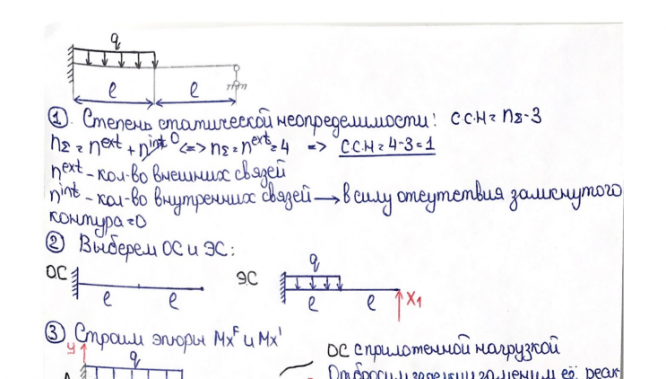 q
l l
① Степень статической неопределимости: ССН = nΣ-3
nΣ = n^ext + n^int 0 <=> nΣ = n^ext = 4 => ССН = 4-3=1
n^ext - кол-во внешних связей
n^int - кол-во внутренних связей → в силу отсутствия замкнутого
контура = 0
② Выберем ОС и ЭС:
q
ОС ЭС
l l l l X1
③ Строим эпюры Mx^F и Mx^1
y q ОС с приложенной нагрузкой
Отбросим заделки заменим её реак